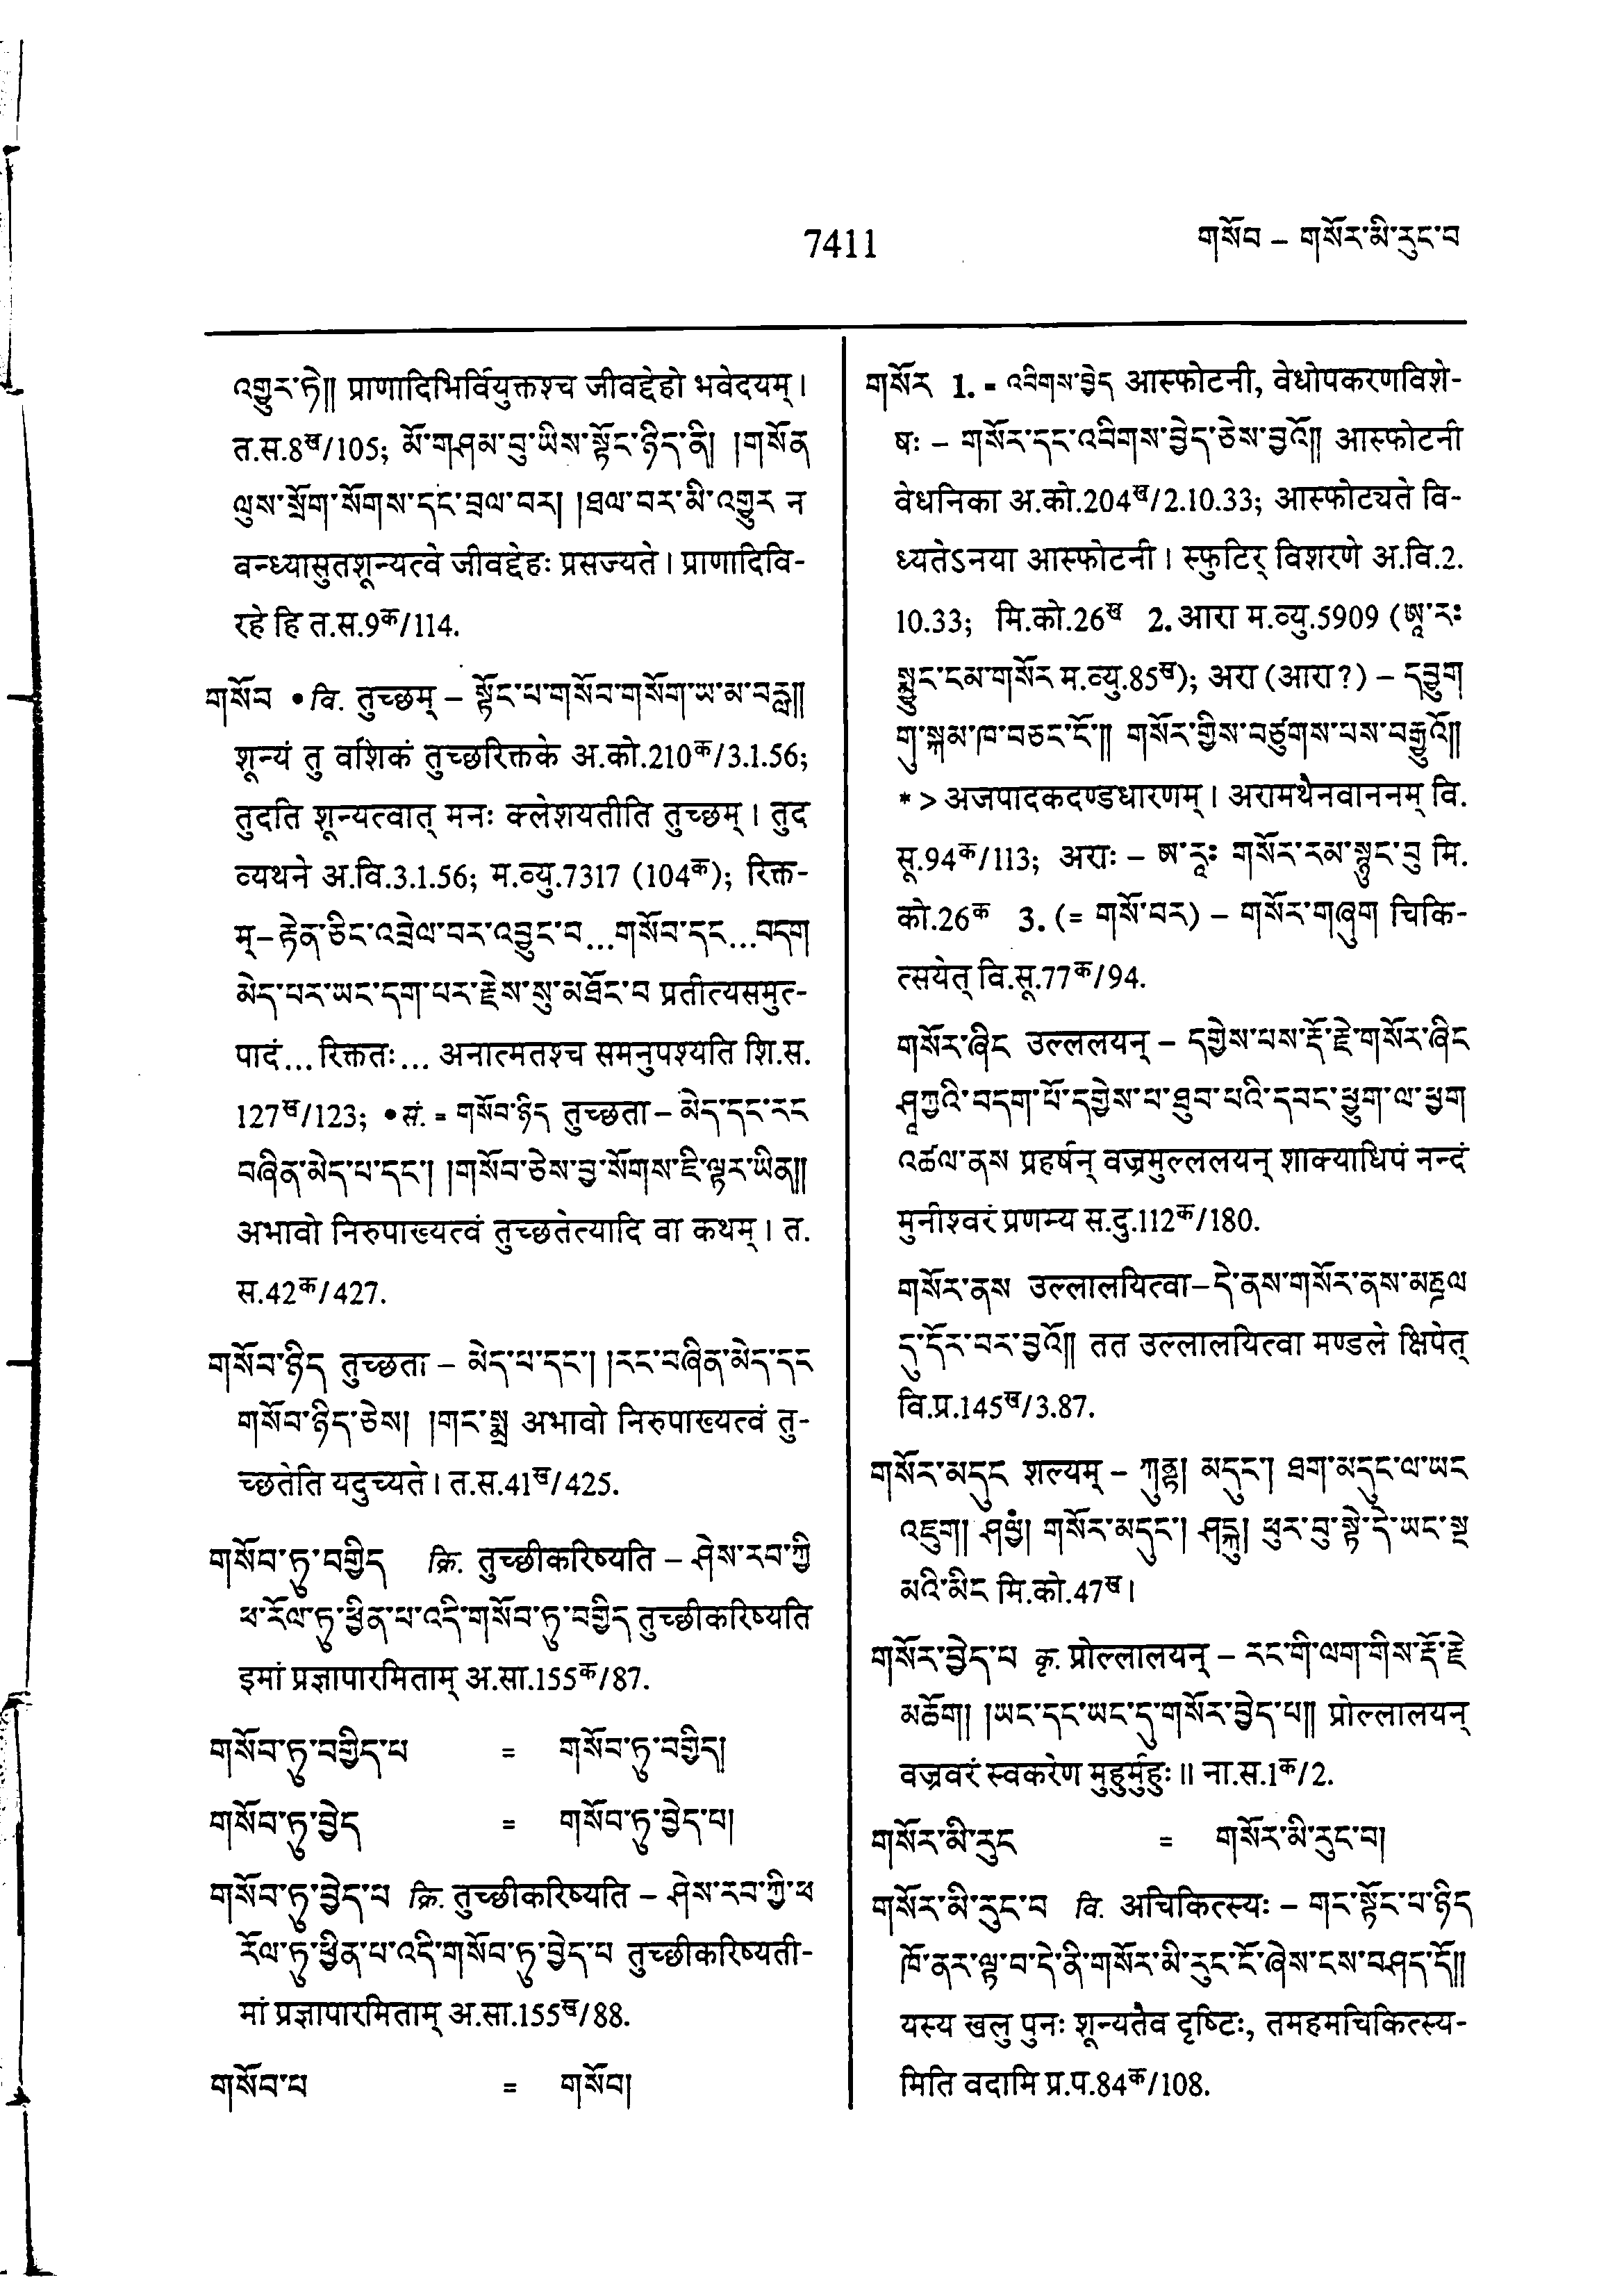 7411
གསོབ – གསོར་མི་རུང་བ
འགྱུར་ཏེ།། प्राणादिभिर्वियुक्तश्च जीवद्देहो भवेदयम्।
त.स.8ख/105; མོ་གཤམ་བུ་ཡིས་སྟོང་ཉིད་ནི། །གསོན
ལུས་སྲོག་སོགས་དང་བྲལ་བར། །ཐལ་བར་མི་འགྱུར न
वन्ध्यासुतशून्यत्वे जीवद्देहः प्रसज्यते। प्राणादिवि-
रहे हि त.स.9क/114.
གསོབ • वि. तुच्छम् – སྟོང་པ་གསོབ་གསོག་ཡ་མ་བརླ།།
शून्यं तु वशिकं तुच्छरिक्तके अ.को.210क/3.1.56;
तुदति शून्यत्वात् मनः क्लेशयतीति तुच्छम्। तुद
व्यथने अ.वि.3.1.56; म.व्यु.7317 (104क); रिक्त-
म्– རྟེན་ཅིང་འབྲེལ་བར་འབྱུང་བ...གསོབ་དང...བདག
མེད་པར་ཡང་དག་པར་རྗེས་སུ་མཐོང་བ प्रतीत्यसमुत्-
पादं... रिक्ततः... अनात्मतश्च समनुपश्यति शि.स.
127ख/123; • सं. = གསོབ་ཉིད तुच्छता – མེད་དང་རང
བཞིན་མེད་པ་དང་། །གསོབ་ཅེས་བྱ་སོགས་ཇི་ལྟར་ཡིན།།
अभावो निरुपाख्यत्वं तुच्छतेत्यादि वा कथम्। त.
स.42क/427.
གསོབ་ཉིད तुच्छता – མེད་པ་དང་། །རང་བཞིན་མེད་དང
གསོབ་ཉིད་ཅེས། །གང་སྨྲ अभावो निरुपाख्यत्वं तु-
च्छतेति यदुच्यते। त.स.41ख/425.
གསོབ་ཏུ་བགྱིད क्रि. तुच्छीकरिष्यति – ཤེས་རབ་ཀྱི
ཕ་རོལ་ཏུ་ཕྱིན་པ་འདི་གསོབ་ཏུ་བགྱིད तुच्छीकरिष्यति
इमां प्रज्ञापारमिताम् अ.सा.155क/87.
གསོབ་ཏུ་བགྱིད་པ = གསོབ་ཏུ་བགྱིད།
གསོབ་ཏུ་བྱེད = གསོབ་ཏུ་བྱེད་པ།
གསོབ་ཏུ་བྱེད་པ क्रि. तुच्छीकरिष्यति – ཤེས་རབ་ཀྱི་ཕ
རོལ་ཏུ་ཕྱིན་པ་འདི་གསོབ་ཏུ་བྱེད་པ तुच्छीकरिष्यती-
मां प्रज्ञापारमिताम् अ.सा.155ख/88.
གསོབ་པ = གསོབ།
གསོར 1. = འབིགས་བྱེད आस्फोटनी, वेधोपकरणविशे-
षः – གསོར་དང་འབིགས་བྱེད་ཅེས་བྱའོ།། आस्फोटनी
वेधनिका अ.को.204ख/2.10.33; आस्फोट्यते वि-
ध्यतेऽनया आस्फोटनी। स्फुटिर् विशरणे अ.वि.2.
10.33; मि.को.26ख 2. आरा म.व्यु.5909 (ཨཱ་རཿ
སྨྱུང་ངམ་གསོར म.व्यु.85ख); अरा (आरा?) – དབྱུག
གུ་སྐམ་ཁ་བཅང་ངོ་།། གསོར་གྱིས་བཙུགས་པས་བརྒྱའོ།།
* > अजपादकदण्डधारणम्। अरामथेनवाननम् वि.
सू.94क/113; अराः – ཨ་རཱཿ གསོར་རམ་སྙུང་བུ मि.
को.26क 3. (= གསོ་བར) – གསོར་གཞུག चिकि-
त्सयेत् वि.सू.77क/94.
གསོར་ཞིང उल्ललयन् – དགྱེས་པས་རྡོ་རྗེ་གསོར་ཞིང
ཤཱཀྱའི་བདག་པོ་དགྱེས་པ་ཐུབ་པའི་དབང་ཕྱུག་ལ་ཕྱག
འཚལ་ནས प्रहर्षन् वज्रमुल्ललयन् शाक्याधिपं नन्दं
मुनीश्वरं प्रणम्य स.दु.112क/180.
གསོར་ནས उल्लालयित्वा– དེ་ནས་གསོར་ནས་མཎྜལ
དུ་དོར་བར་བྱའོ།། तत उल्लालयित्वा मण्डले क्षिपेत्
वि.प्र.145ख/3.87.
གསོར་མདུང शल्यम् – ཀུནྟ། མདུང་། ཐག་མདུང་ལ་ཡང
འཇུག། ཤལྱཾ། གསོར་མདུང་། ཤངྐུ། ཕུར་བུ་སྟེ་དེ་ཡང་སྔ
མའི་མིང मि.को.47ख।
གསོར་བྱེད་པ कृ. प्रोल्लालयन् – རང་གི་ལག་གིས་རྡོ་རྗེ
མཆོག། །ཡང་དང་ཡང་དུ་གསོར་བྱེད་པ།། प्रोल्लालयन्
वज्रवरं स्वकरेण मुहुर्मुहुः॥ ना.स.1क/2.
གསོར་མི་རུང = གསོར་མི་རུང་བ།
གསོར་མི་རུང་བ वि. अचिकित्स्यः – གང་སྟོང་པ་ཉིད
ཁོ་ནར་ལྟ་བ་དེ་ནི་གསོར་མི་རུང་ངོ་ཞེས་ངས་བཤད་དོ།།
यस्य खलु पुनः शून्यतैव दृष्टिः, तमहमचिकित्स्य-
मिति वदामि प्र.प.84क/108.